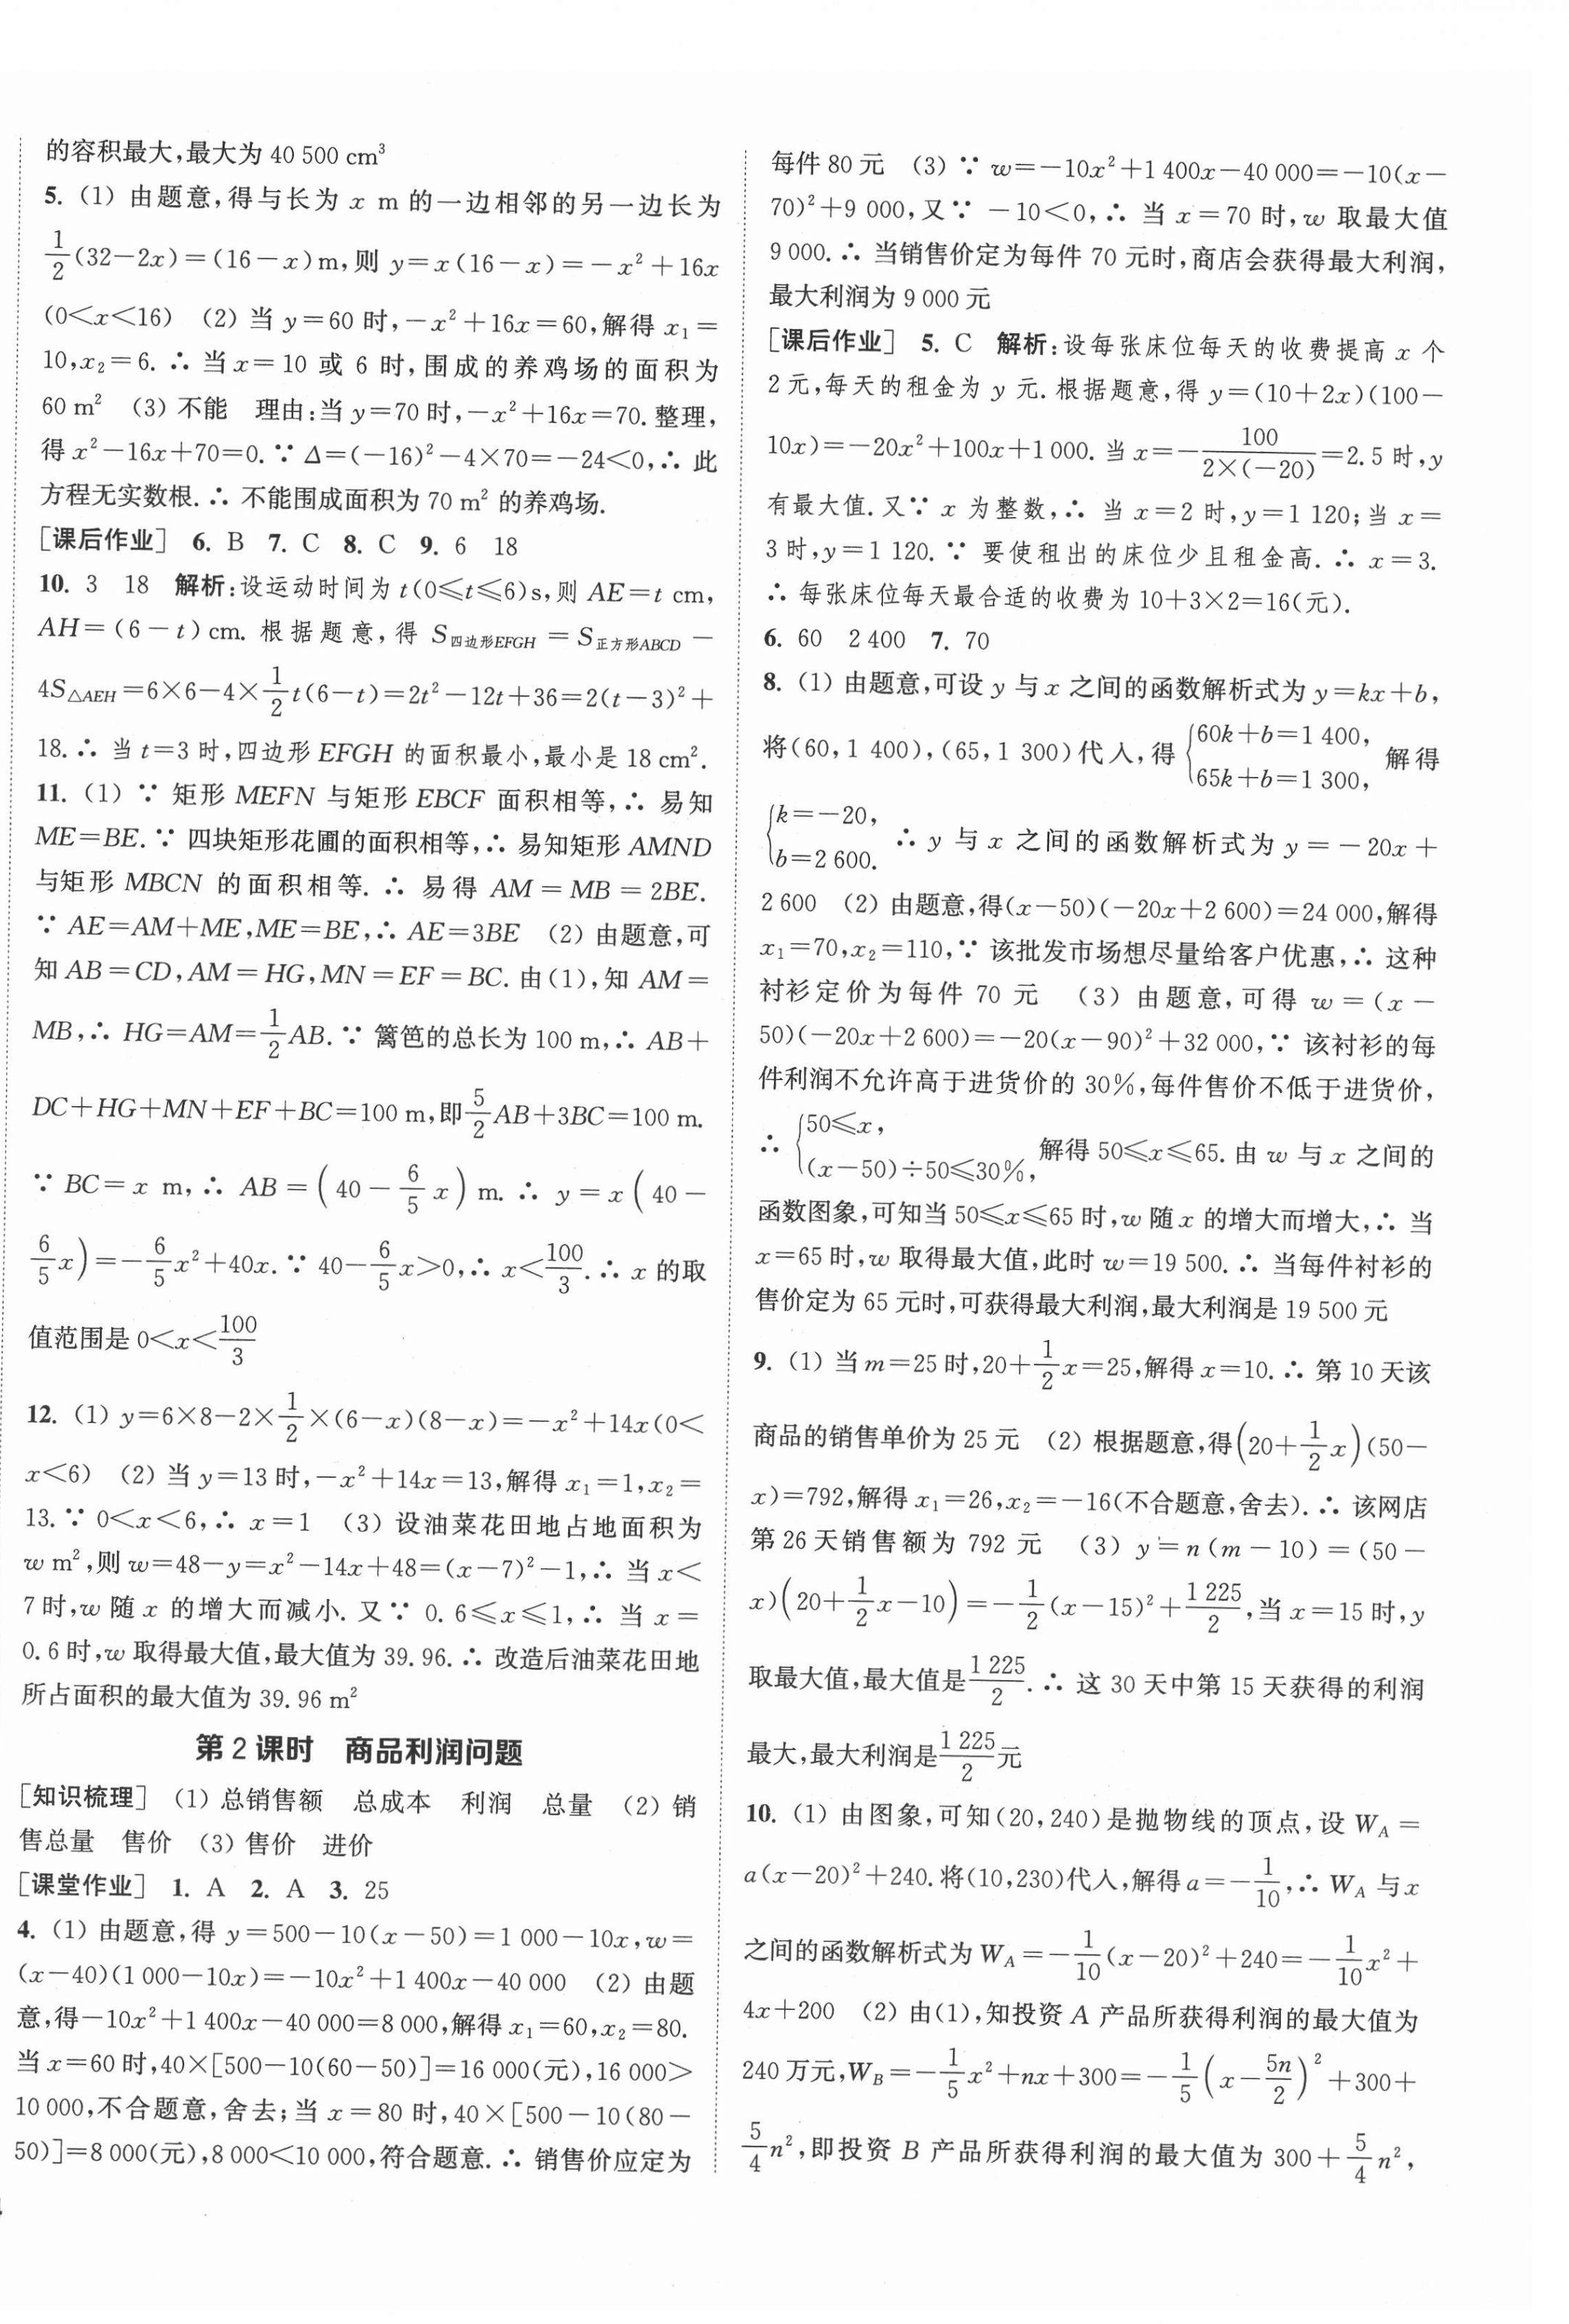 的容积最大,最大为 40 500 cm³
5. (1) 由题意,得与长为 x m 的一边相邻的另一边长为
1/2(32－2x)＝(16－x)m,则 y＝x(16－x)＝－x²＋16x
(0＜x＜16) (2) 当 y＝60 时,－x²＋16x＝60,解得 x₁＝
10,x₂＝6. ∴ 当 x＝10 或 6 时,围成的养鸡场的面积为
60 m² (3) 不能 理由:当 y＝70 时,－x²＋16x＝70. 整理,
得 x²－16x＋70＝0. ∵ Δ＝(－16)²－4×70＝－24＜0,∴ 此
方程无实数根. ∴ 不能围成面积为 70 m² 的养鸡场.
[课后作业] 6. B 7. C 8. C 9. 6 18
10. 3 18 解析:设运动时间为 t(0≤t≤6)s,则 AE＝t cm,
AH＝(6－t) cm. 根据题意,得 S四边形EFGH ＝ S正方形ABCD －
4S△AEH＝6×6－4×1/2t(6－t)＝2t²－12t＋36＝2(t－3)²＋
18. ∴ 当 t＝3 时,四边形 EFGH 的面积最小,最小是 18 cm².
11. (1) ∵ 矩形 MEFN 与矩形 EBCF 面积相等,∴ 易知
ME＝BE. ∵ 四块矩形花圃的面积相等,∴ 易知矩形 AMND
与矩形 MBCN 的面积相等. ∴ 易得 AM＝MB＝2BE.
∵ AE＝AM＋ME,ME＝BE,∴ AE＝3BE (2) 由题意,可
知 AB＝CD,AM＝HG,MN＝EF＝BC. 由(1),知 AM＝
MB,∴ HG＝AM＝1/2AB. ∵ 篱笆的总长为 100 m,∴ AB＋
DC＋HG＋MN＋EF＋BC＝100 m,即5/2AB＋3BC＝100 m.
∵ BC＝x m,∴ AB＝(40－6/5x) m. ∴ y＝x(40－
6/5x)＝－6/5x²＋40x. ∵ 40－6/5x＞0,∴ x＜100/3. ∴ x 的取
值范围是 0＜x＜100/3
12. (1) y＝6×8－2×1/2×(6－x)(8－x)＝－x²＋14x(0＜
x＜6) (2) 当 y＝13 时,－x²＋14x＝13,解得 x₁＝1,x₂＝
13. ∵ 0＜x＜6,∴ x＝1 (3) 设油菜花田地占地面积为
w m²,则 w＝48－y＝x²－14x＋48＝(x－7)²－1,∴ 当 x＜
7 时,w 随 x 的增大而减小. 又∵ 0.6≤x≤1,∴ 当 x＝
0.6 时,w 取得最大值,最大值为 39.96. ∴ 改造后油菜花田地
所占面积的最大值为 39.96 m²
第 2 课时 商品利润问题
[知识梳理] (1) 总销售额 总成本 利润 总量 (2) 销
售总量 售价 (3) 售价 进价
[课堂作业] 1. A 2. A 3. 25
4. (1) 由题意,得 y＝500－10(x－50)＝1 000－10x,w＝
(x－40)(1 000－10x)＝－10x²＋1 400x－40 000 (2) 由题
意,得－10x²＋1 400x－40 000＝8 000,解得 x₁＝60,x₂＝80.
当 x＝60 时,40×[500－10(60－50)]＝16 000(元),16 000＞
10 000,不合题意,舍去;当 x＝80 时,40×[500－10(80－
50)]＝8 000(元),8 000＜10 000,符合题意. ∴ 销售价应定为
每件 80 元 (3) ∵ w＝－10x²＋1 400x－40 000＝－10(x－
70)²＋9 000,又∵ －10＜0,∴ 当 x＝70 时,w 取最大值
9 000. ∴ 当销售价定为每件 70 元时,商店会获得最大利润,
最大利润为 9 000 元
[课后作业] 5. C 解析:设每张床位每天的收费提高 x 个
2 元,每天的租金为 y 元. 根据题意,得 y＝(10＋2x)(100－
10x)＝－20x²＋100x＋1 000. 当 x＝－100/(2×(－20))＝2.5 时,y
有最大值. 又∵ x 为整数,∴ 当 x＝2 时,y＝1 120;当 x＝
3 时,y＝1 120. ∵ 要使租出的床位少且租金高. ∴ x＝3.
∴ 每张床位每天最合适的收费为 10＋3×2＝16(元).
6. 60 2 400 7. 70
8. (1) 由题意,可设 y 与 x 之间的函数解析式为 y＝kx＋b,
将(60,1 400),(65,1 300)代入,得 {60k＋b＝1 400, 65k＋b＝1 300, 解得
{k＝－20, b＝2 600. ∴ y 与 x 之间的函数解析式为 y＝－20x＋
2 600 (2) 由题意,得(x－50)(－20x＋2 600)＝24 000,解得
x₁＝70,x₂＝110,∵ 该批发市场想尽量给客户优惠,∴ 这种
衬衫定价为每件 70 元 (3) 由题意,可得 w＝(x－
50)(－20x＋2 600)＝－20(x－90)²＋32 000,∵ 该衬衫的每
件利润不允许高于进货价的 30%,每件售价不低于进货价,
∴ {50≤x, (x－50)÷50≤30%, 解得 50≤x≤65. 由 w 与 x 之间的
函数图象,可知当 50≤x≤65 时,w 随 x 的增大而增大,∴ 当
x＝65 时,w 取得最大值,此时 w＝19 500. ∴ 当每件衬衫的
售价定为 65 元时,可获得最大利润,最大利润是 19 500 元
9. (1) 当 m＝25 时,20＋1/2x＝25,解得 x＝10. ∴ 第 10 天该
商品的销售单价为 25 元 (2) 根据题意,得(20＋1/2x)(50－
x)＝792,解得 x₁＝26,x₂＝－16(不合题意,舍去). ∴ 该网店
第 26 天销售额为 792 元 (3) y＝n(m－10)＝(50－
x)(20＋1/2x－10)＝－1/2(x－15)²＋1 225/2,当 x＝15 时,y
取最大值,最大值是1 225/2. ∴ 这 30 天中第 15 天获得的利润
最大,最大利润是1 225/2元
10. (1) 由图象,可知(20,240)是抛物线的顶点,设 W_A＝
a(x－20)²＋240. 将(10,230)代入,解得 a＝－1/10,∴ W_A 与 x
之间的函数解析式为 W_A＝－1/10(x－20)²＋240＝－1/10x²＋
4x＋200 (2) 由(1),知投资 A 产品所获得利润的最大值为
240 万元,W_B＝－1/5x²＋nx＋300＝－1/5(x－5n/2)²＋300＋
5/4n²,即投资 B 产品所获得利润的最大值为 300＋5/4n²,